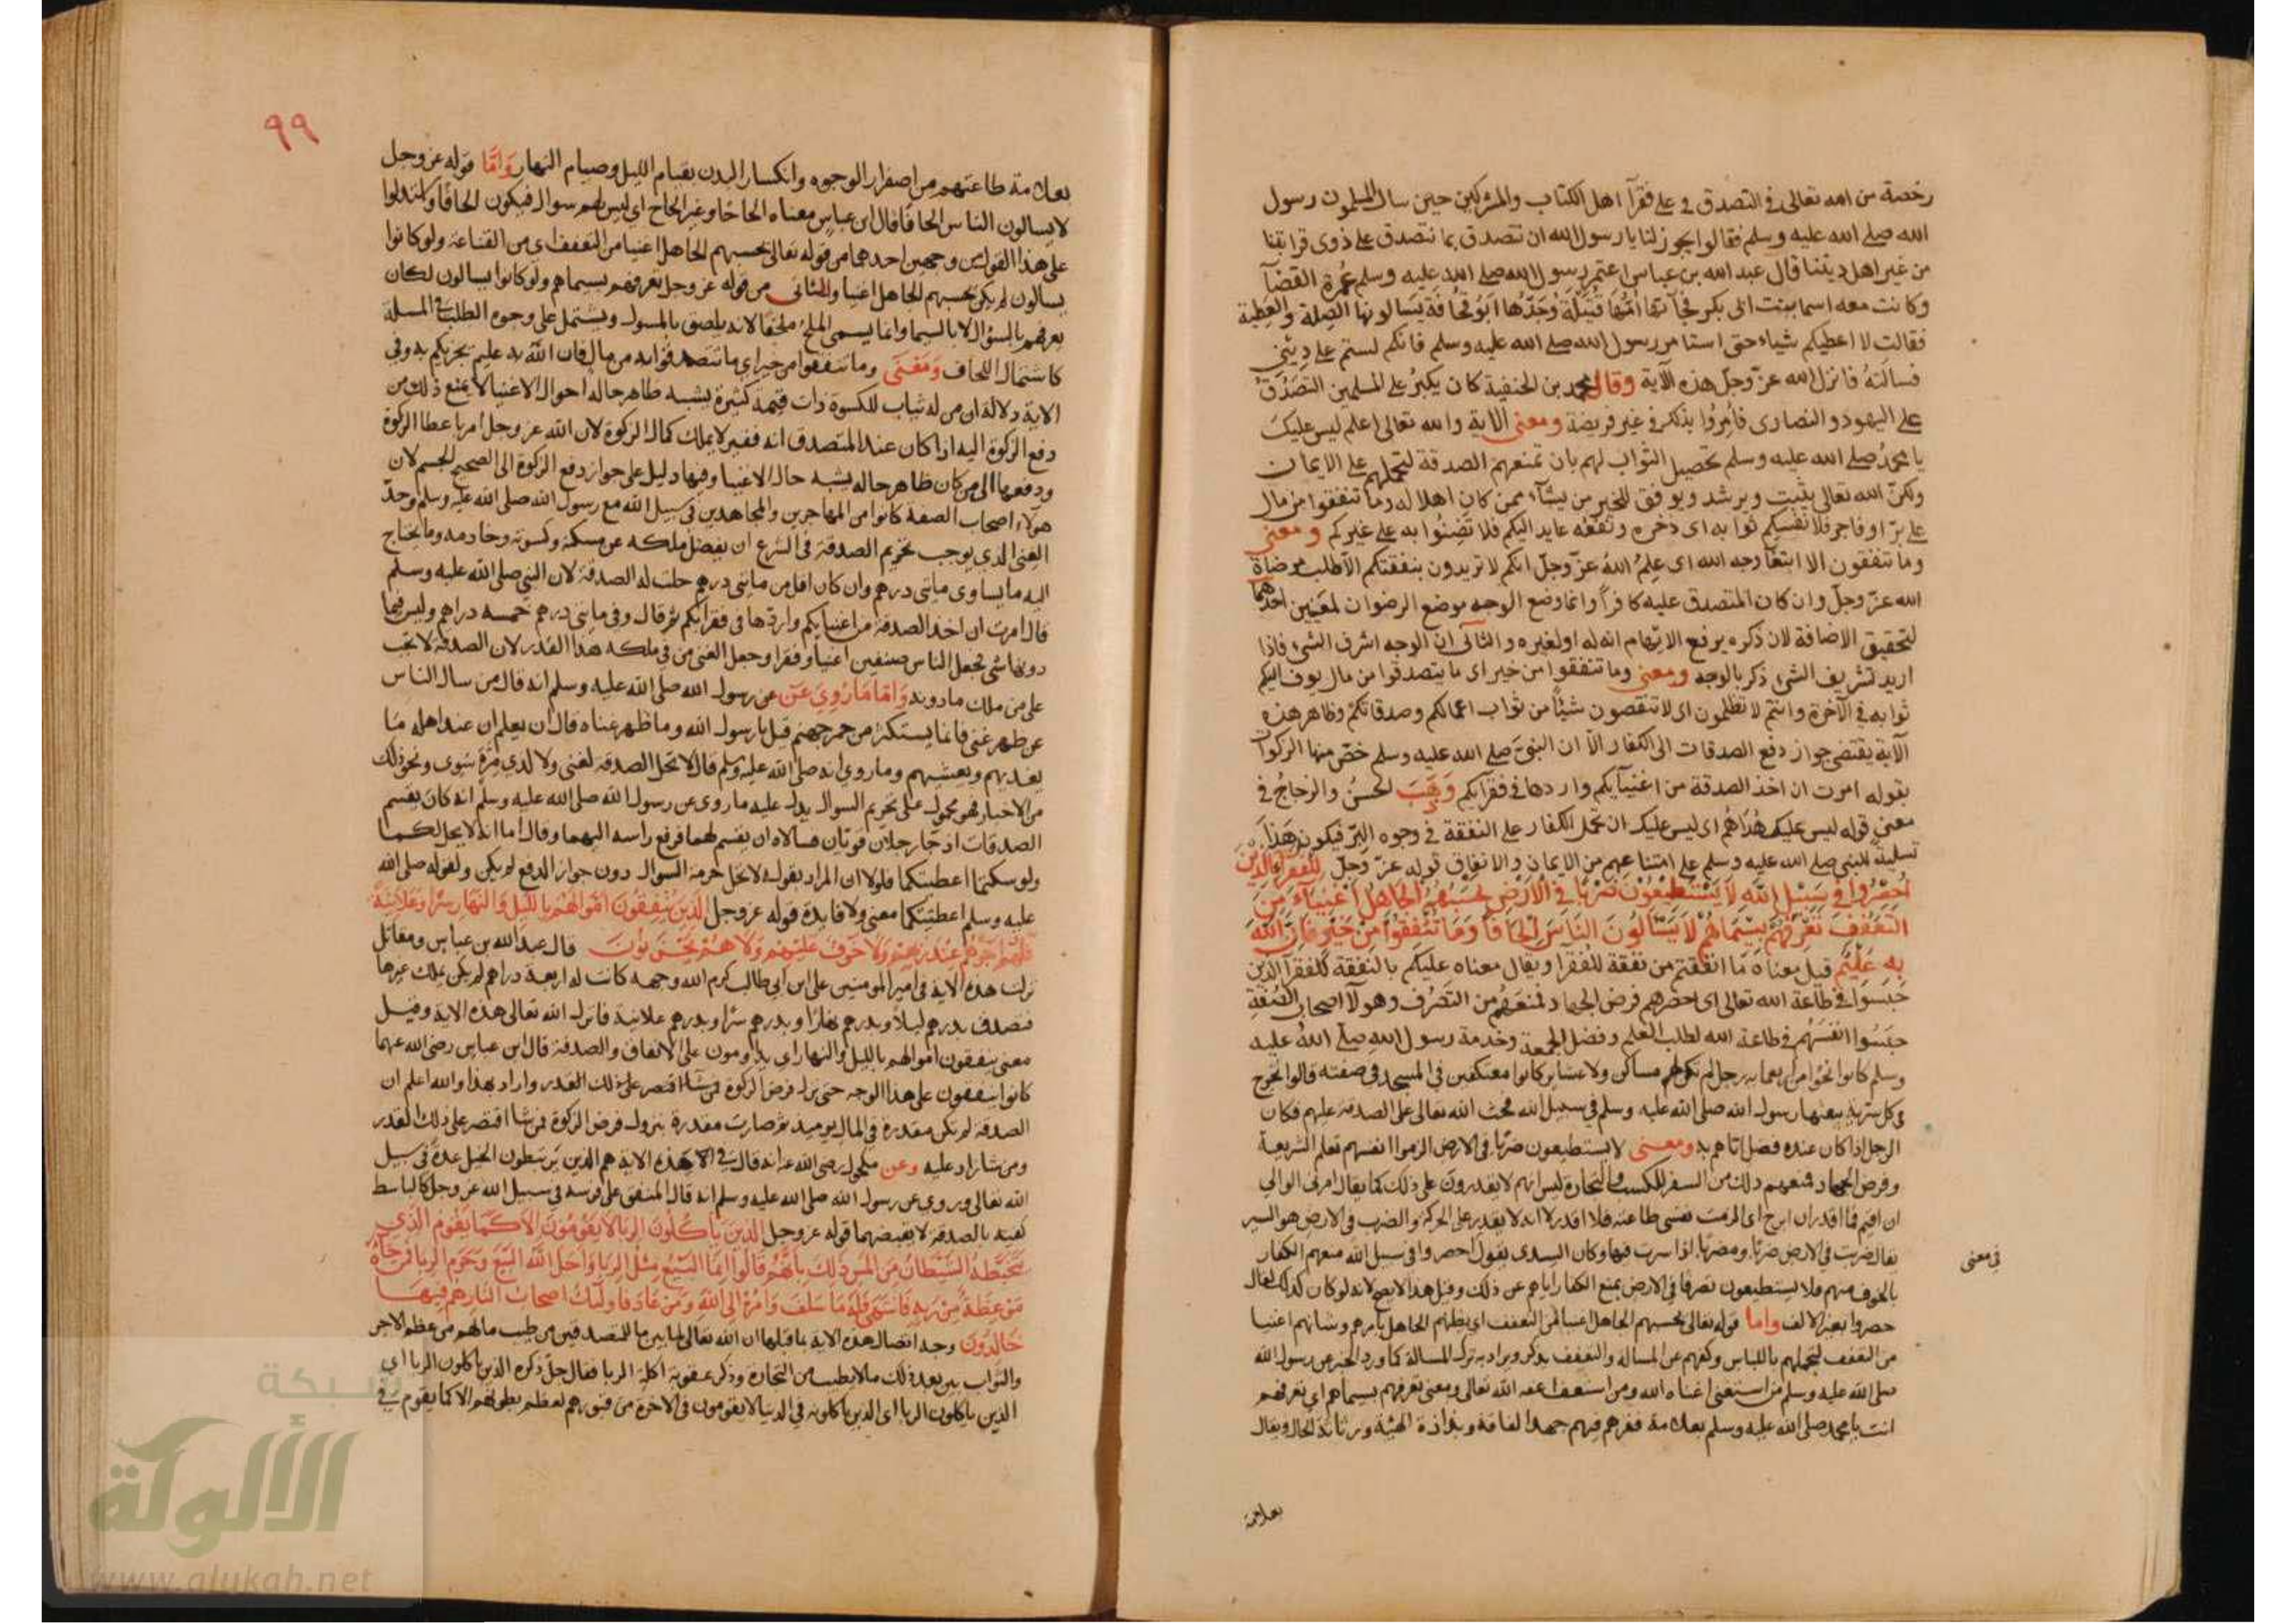 رخصة من الله تعالى في التصدق في على فقرآ اهل الكتاب والمشركين حين سال المسلمون رسول
الله صلى الله عليه وسلم فقالوا ايجوز لنا يا رسول الله ان نتصدق بما نتصدق على ذوى قرابتنا
من غير اهل ديننا قال عبد الله بن عباس اعتمر رسول الله صلى الله عليه وسلم عُمرة القضآ
وكانت معه اسما بنت ابى بكر فجآتها امّها قتيلة وجدّها ابو قحافة يسالونها الصِلة والعطية
فقالت لا اعطيكم شياء حتى استامر رسول الله صلى الله عليه وسلم فانكم لستم على دِينى
فسالتهُ فانزل الله عزّ وجلّ هذه الآية وقال محمد بن الحنفية كان يكبرُ على المسلمين التصدّقُ
على اليهود والنصارى فأمِرُوا بذلك في غير فريضة ومعنى الآية والله تعالى اعلم ليس عليك
يا محمدُ صلى الله عليه وسلم تحصيل الثواب لهم بان تمنعهم الصدقة لتحملهم على الايمان
ولكنّ الله تعالى يثبت ويرشد ويوفق للخير من يشآء ممن كان اهلا له وما تنفقوا من مال
على برّ او فاجر فلانفسكم ثوابه اى ذخره ونفعه عايد اليكم فلا تضِنُوا به على غيركم ومعنى
وما تنفقون الا ابتغآ وجه الله اى علِمُ اللهُ عزّ وجلّ انكم لا تريدون بنفقتكم الّا طلب مرضاة
الله عزّ وجلّ وان كان المتصدق عليه كافراً وانما وضع الوجه موضع الرضوان لمعنيين احدهما
لتحقيق الاضافة لان ذكره يرفع الابهام انه له او لغيره والثانى انّ الوجه اشرف الشىء فاذا
اريد تشريف الشىء ذكر بالوجه ومعنى وما تنفقوا من خير اى ما يتصدقوا من مال يوف اليكم
ثوابه في الآخرة وانتم لا تظلمون اى لا تنقصون شيئاً من ثواب اعمالكم وصدقاتكم وظاهر هذه
الآية يقتضى جواز دفع الصدقات الى الكفار الّا ان النبيّ صلى الله عليه وسلم خصّ منها الزكوات
بقوله امرت ان اخذ الصدقة من اغنيآيكم واردها في فقرآيكم الحسنُ والزجاجُ في
معنى قوله ليس عليك هُدَاهُم اى ليس عليك ان تحمل الكفار على النفقة في وجوه البرّ فيكون هَذَا
تسلية للنبى صلى الله عليه وسلم على امتناعهم من الايمان والانفاق قوله عزّ وجلّ للفقرآء الذين
اُحْصِرُوا فى سَبِيْلِ اللهِ لَا يَسْتَطِيْعُوْنَ ضَرْبًا فِي الْأَرْضِ يَحْسَبُهُمُ الجَاهِلُ أَغْنِيَآءَ مِنَ
التَّعَفُّفِ تَعْرِفُهُمْ بِسِيْمَاهُمْ لَا يَسْأَلُونَ النَّاسَ إِلْحَافًا وَمَا تُنْفِقُوْا مِنْ خَيْرٍ فَإِنَّ اللهَ
بِهِ عَلِيْمٌ قيل معناه مَا انفقتم من نفقة للفقرا ويقال معناه عليكم بالنفقة للفقرآ الذين
حَبَسُوا في طاعة الله تعالى اى احصرهم فرض الجهاد فمنعهم من التصَرُف وهولآ اصحاب الصُفّةِ
حبَسُوا انفسَهُم في طاعة الله لطلب العلم وفضل الجمعة وخدمة رسول الله صلى الله عليه
وسلم كانوا نحوًا من اربعمايه رجل لم تكن لهم مساكن ولا عشاير كانوا معتكفين في المسجد في صفته قالوا نخرج
في كل سَرِيّةٍ يبعثها رسول الله صلى الله عليه وسلم في سبيل الله فحث الله تعالى على الصدقة عليهم فكان
الرجل اذا كان عنده فضل اتاهم به ومعنى لا يستطيعون ضربًا في الارض الزموا انفسهم تعلم الشريعة
وفرض الجهاد فمنعهم ذلك من السفر للكسب والتجارة ليس انهم لا يقدرون على ذلك كما يقال امرنى الوالي
ان اقيم فما اقدر ان ابرح اى الزمت نفسى طاعته فلا اقدر لا انه لا يقدر على الحركة والضرب في الارض هو السير
يقال ضربت في الارض ضربًا ومضربًا اذا سرت فيها وكان السدى يقول احصروا في سبيل الله منعهم الكفار
في معنى
بالخوف منهم فلا يستطيعون تصرفًا في الارض بمنع الكفار اياهم عن ذلك وقيل هذا لا يصح لانه لو كان كذلك لقال
حصروا بغير الالف واما قوله تعالى يحسبهم الجاهل اغنيا من التعفف اى يظنهم الجاهل بامرهم وشانهم اغنيا
من التعفف لتجملهم باللباس وكفهم عن المساله والتعفف يذكر ويراد به ترك المسالة كما ورد الخبر عن رسول الله
صلى الله عليه وسلم من استغنى اغناه الله ومن استعف اعفه الله تعالى ومعنى تعرفهم بسيماهم اى تعرفهم
انت يا محمد صلى الله عليه وسلم بعلامة فقرهم فيهم جهد الفاقة وبذاذة الهيئة ورثاثة الحال ويقال
بعلامة
٩٩
بعلامة طاعتهم من اصفرار الوجوه وانكسار البدن بقيام الليل وصيام النهار وَامّا قوله عز وجل
لا يسالون الناس الحافًا فقال ابن عباس معناه الحاحًا وغير الحاح اى ليس لهم سوال فيكون الحافًا واستدلوا
على هذا القول من وجهين احدهما من قوله تعالى يحسبهم الجاهل اغنيا من التعفف اى من القناعة ولو كانوا
يسالون لم يكن يحسبهم الجاهل اغنيا والثانى من قوله عز وجل تعرفهم بسيماهم ولو كانوا يسالون لكان
يعرفهم بالسؤال لا بالسيما وانما يسمى الملحّ ملحفا لانه يلصق بالمسول ويشتمل على وجوه الطلب في المسلة
كاشتمال اللحاف وَمَعْنَى وما تنفقوا من خير اى ما تتصدقوا به من مال فان الله به عليم يجزيكم به وفي
الاية دلالة ان من له ثياب للكسوة ذات قيمة كثيرة يشبه ظاهر حاله احوال الاغنيا لا يمنع ذلك من
دفع الزكوة اليه اذا كان عند المتصدق انه فقير لا يملك كمال الزكوة لان الله عز وجل امر باعطا الزكوة
ودفعها الى من كان ظاهر حاله يشبه حال الاغنيا وفيها دليل على جواز دفع الزكوة الى الصحيح الجسم لان
هولاء اصحاب الصفة كانوا من المهاجرين والمجاهدين في سبيل الله مع رسول الله صلى الله عليه وسلم وحدّ
الغنى الذي يوجب تحريم الصدقة في الشرع ان يفضل ملكه عن مسكنه وكسوته وخادمه وما يحتاج
اليه ما يساوى مايتى درهم وان كان اقل من مايتى درهم حلت له الصدقة لان النبي صلى الله عليه وسلم
قال امرت ان اخذ الصدقة من اغنيايكم واردّها في فقرائكم ثم قال وفي مايتى درهم خمسة دراهم وليس فيما
دونها شي فجعل الناس صنفين اغنيا وفقرا وجعل الغنى من في ملكه هذا القدر لان الصدقة لا تجب
على من ملك ما دونه وَامّا مَا رُوِيَ عَن عن رسول الله صلى الله عليه وسلم انه قال من سال الناس
عن ظهر غنى فانما يستكثر من جمر جهنم قيل يا رسول الله وما ظهر غناه قال ان يعلم ان عند اهله ما
يغديهم ويعشيهم وما روي انه صلى الله عليه وسلم قال لا تحل الصدقة لغنى ولا لذي مِرّةٍ سَوِى ونحو ذلك
من الاخبار فهو محمول على تحريم السوال يدل عليه ما روى عن رسول الله صلى الله عليه وسلم انه كان يقسم
الصدقات اذ جآ رجلان قويّان فسالاه ان يقسم لهما فرفع راسه اليهما وقال اما انه لا يحل لكما
ولو سكتما اعطيتكما فلولا ان المراد بقوله لا تحل حرمة السوال دون جواز الدفع لم يكن لقوله صلى الله
عليه وسلم اعطيتكما معنى ولا فايدة قوله عز وجل الَّذِينَ يُنْفِقُونَ اَمْوَالَهُمْ بِاللَّيْلِ وَالنَّهَارِ سِرًّا وَعَلَانِيَةً
فَلَهُمْ اَجْرُهُمْ عِنْدَ رَبِّهِمْ وَلَا خَوْفٌ عَلَيْهِمْ وَلَا هُمْ يَحْزَنُونَ قال عبد الله بن عباس ومقاتل
نزلت هذه الاية في امير المومنين على ابن ابى طالب كرم الله وجهه كانت له اربعة دراهم لم يكن يملك غيرها
فتصدق بدرهم ليلًا وبدرهم نهارًا وبدرهم سرًا وبدرهم علانية فانزل الله تعالى هذه الاية وقيل
معنى ينفقون اموالهم بالليل والنهار اى يداومون على الانفاق والصدقة قال ابن عباس رضى الله عنهما
كانوا ينفقون على هذا الوجه حتى نزل فرض الزكوة فمن شا اقتصر على ذلك القدر واراد بهذا والله اعلم ان
الصدقة لم يكن مقدرة في المال يوميذ ثم صارت مقدرة بنزول فرض الزكوة فمن شا اقتصر على ذلك القدر
ومن شا زاد عليه وعن مكحول رضى الله عنه انه قال في هذه الاية هم الذين يرتبطون الخيل عدة في سبيل
الله تعالى وروي عن رسول الله صلى الله عليه وسلم انه قال المنفق على فرسه في سبيل الله عز وجل كالباسط
كفيه بالصدقة لا يقبضهما قوله عز وجل الَّذِينَ يَاكُلُونَ الرِبَا لَا يَقُومُونَ اِلَّا كَمَا يَقُومُ الَّذِي
يَتَخَبَّطُهُ الشَّيْطَانُ مِنَ المَسِّ ذَلِكَ بِاَنَّهُمْ قَالُوا اِنَّمَا البَيْعُ مِثْلُ الرِبَا وَاَحَلَّ اللهُ البَيْعَ وَحَرَّمَ الرِبَا فَمَنْ جَآءَهُ
مَوْعِظَةٌ مِنْ رَبِهِ فَانْتَهَى فَلَهُ مَا سَلَفَ وَاَمْرُهُ اِلَى اللهِ وَمَنْ عَادَ فَاُولَئِكَ اَصْحَابُ النَّارِ هُمْ فِيهَا
خَالِدُونَ وجه اتصال هذه الاية بما قبلها ان الله تعالى لما بين ما للمتصدقين من طيب مالهم من عظم الاجر
والثواب بين بعد ذلك ما لا يطيب من التجارة وذكر عقوبة اكلة الربا فقال جلّ ذكره الذين ياكلون الربا اى
الذين ياكلون الربا اى الذين ياكلونه في الدنيا لا يقومون في الاخرة من قبورهم لعظم بطونهم الا كما يقوم في
شبكة
الألوكة
www.alukah.net